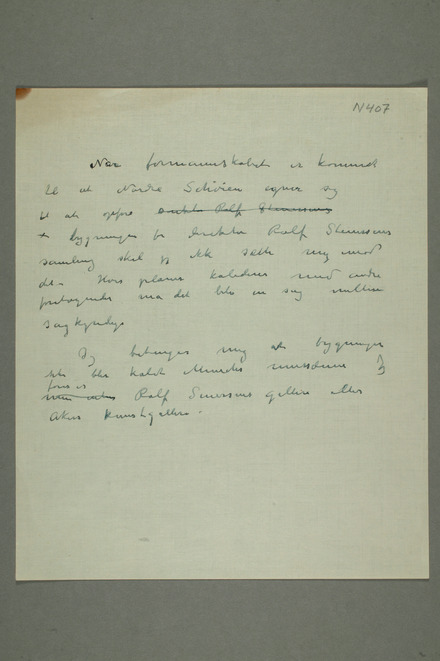 N407
Når formannskabet er kommet
til at Nordre Schöien egner sig
til at opføre direktør Rolf Stenersens
bygninger for direktør Rolf Stenersens
samling skal jeg ikk sætte mig mod
det. Hvis planen kolliderer med andre
foretagender må det bli en sag mellem
sagkyndige
Jeg betinger mig at bygningen
ikke blir kaldt Munchs museum
Rolf Stenersens galleri eller
Akers kunstgalleri.